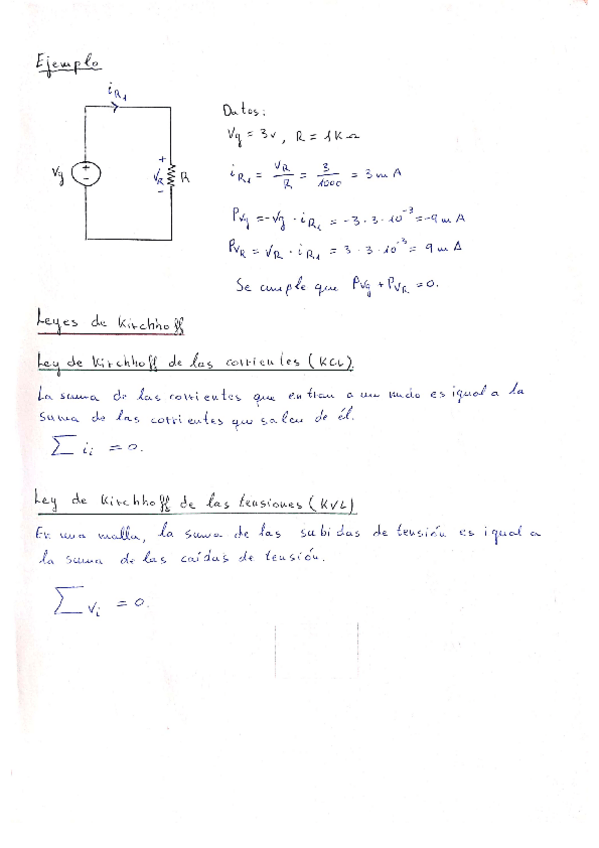 Ejemplo
iR1
Vg
+
-
+
VR
-
R
Datos:
Vg = 3v, R = 1KΩ
iR1 = VR/R = 3/1000 = 3mA
PVg = -Vg · iR1 = -3·3·10^-3 = -9mA
PVR = VR · iR1 = 3·3·10^-3 = 9mA
Se cumple que PVg + PVR = 0.
Leyes de Kirchhoff
Ley de Kirchhoff de las corrientes (KCL).
La suma de las corrientes que entran a un nudo es igual a la
suma de las corrientes que salen de él.
∑ ii = 0.
Ley de Kirchhoff de las tensiones (KVL)
En una malla, la suma de las subidas de tensión es igual a
la suma de las caídas de tensión.
∑ Vi = 0.